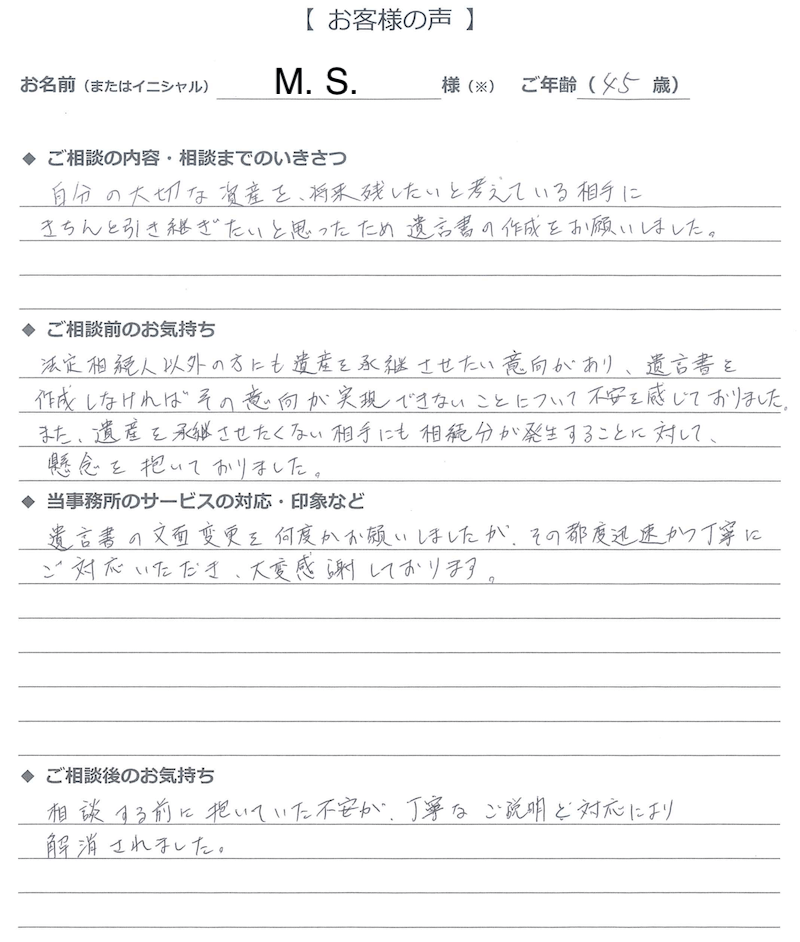 【 お客様の声 】
お名前（またはイニシャル） M. S. 様（※） ご年齢（ 45 歳）
◆ ご相談の内容・相談までのいきさつ
自分の大切な資産を、将来残したいと考えている相手に
きちんと引き継ぎたいと思ったため遺言書の作成をお願いしました。
◆ ご相談前のお気持ち
法定相続人以外の方にも遺産を承継させたい意向があり、遺言書を
作成しなければその意向が実現できないことについて不安を感じておりました。
また、遺産を承継させたくない相手にも相続分が発生することに対して、
懸念を抱いておりました。
◆ 当事務所のサービスの対応・印象など
遺言書の文面変更を何度かお願いしましたが、その都度迅速かつ丁寧に
ご対応いただき、大変感謝しております。
◆ ご相談後のお気持ち
相談する前に抱いていた不安が、丁寧なご説明と対応により
解消されました。